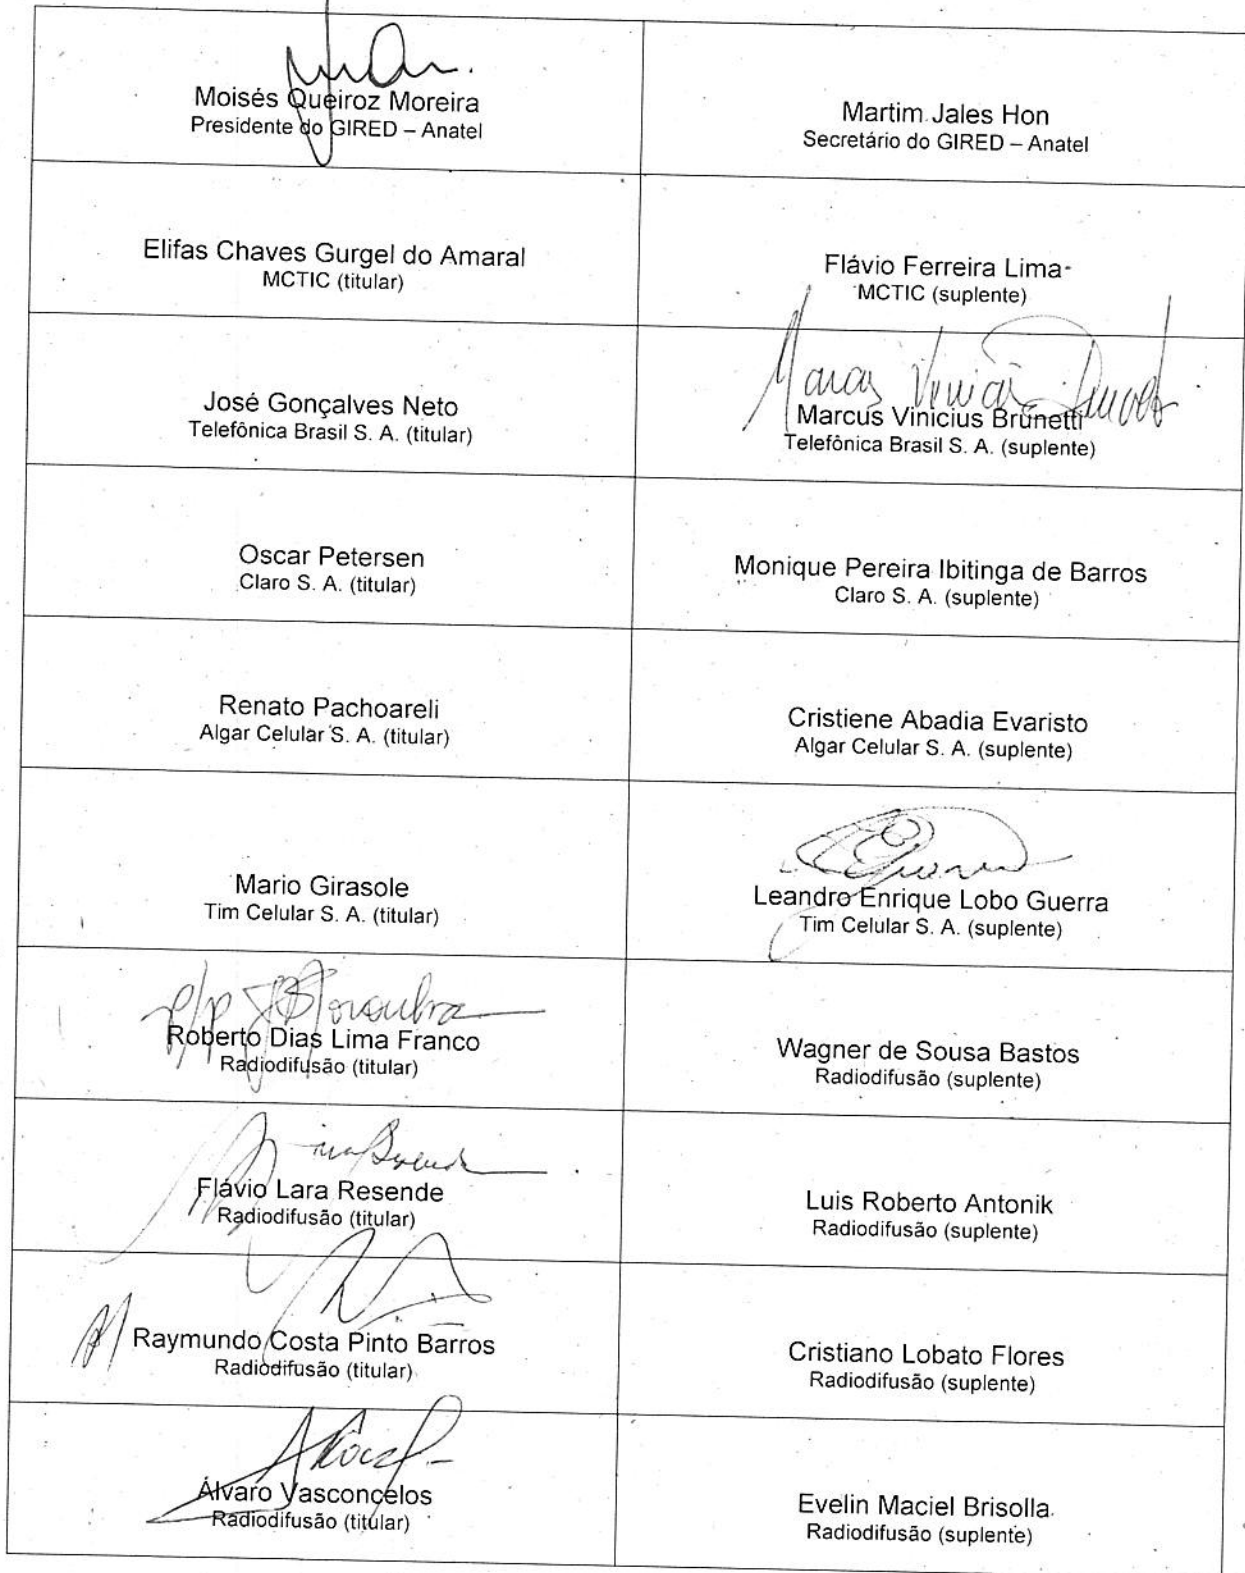 Moisés Queiroz Moreira
Presidente do GIRED – Anatel
Martim Jales Hon
Secretário do GIRED – Anatel
Elifas Chaves Gurgel do Amaral
MCTIC (titular)
Flávio Ferreira Lima
MCTIC (suplente)
José Gonçalves Neto
Telefônica Brasil S. A. (titular)
Marcus Vinicius Brunetti
Telefônica Brasil S. A. (suplente)
Oscar Petersen
Claro S. A. (titular)
Monique Pereira Ibitinga de Barros
Claro S. A. (suplente)
Renato Pachoareli
Algar Celular S. A. (titular)
Cristiene Abadia Evaristo
Algar Celular S. A. (suplente)
Mario Girasole
Tim Celular S. A. (titular)
Leandro Enrique Lobo Guerra
Tim Celular S. A. (suplente)
p/p
Roberto Dias Lima Franco
Radiodifusão (titular)
Wagner de Sousa Bastos
Radiodifusão (suplente)
Flávio Lara Resende
Radiodifusão (titular)
Luis Roberto Antonik
Radiodifusão (suplente)
Raymundo Costa Pinto Barros
Radiodifusão (titular)
Cristiano Lobato Flores
Radiodifusão (suplente)
Álvaro Vasconcelos
Radiodifusão (titular)
Evelin Maciel Brisolla
Radiodifusão (suplente)